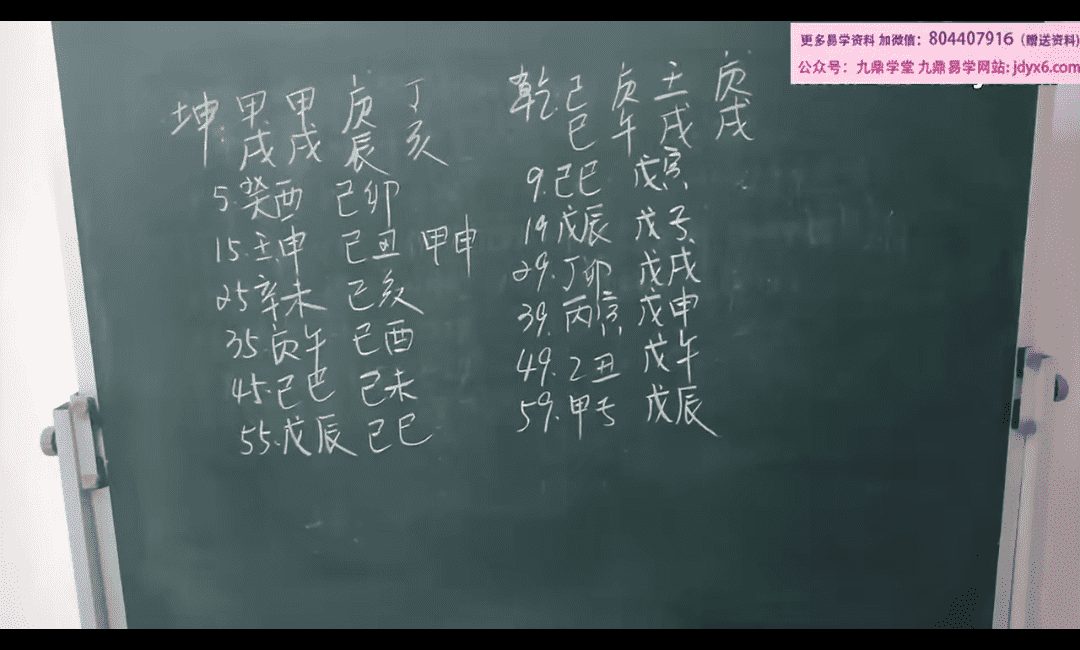 更多易学资料 加微信：804407916（赠送资料）
公众号：九鼎学堂 九鼎易学网站: jdyx6.com
坤: 甲 甲 庚 丁
戌 戌 辰 亥
5. 癸酉 己卯
15. 壬申 己丑 甲申
25 辛未 己亥
35. 庚午 己酉
45. 己巳 己未
55. 戊辰 己巳
乾: 己 庚 壬 庚
巳 午 戌 戌
9. 己巳 戊寅
19 戊辰 戊子
29. 丁卯 戊戌
39. 丙寅 戊申
49. 乙丑 戊午
59. 甲子 戊辰